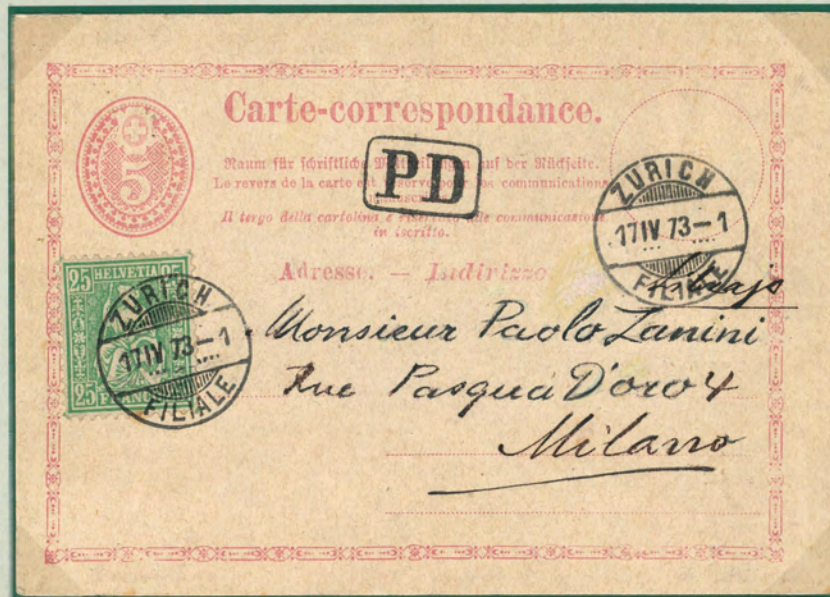 Carte-correspondance.
5
PD
Raum für schriftliche Mittheilungen auf der Rückseite.
Le revers de la carte est réservé pour les communications
manuscrites.
Il tergo della cartolina è riservato alle communicazioni
in iscritto.
Adresse. — Indirizzo.
ZURICH
17 IV 73–1
FILIALE
25 HELVETIA 25
25 FRANCO
ZURICH
17 IV 73–1
FILIALE
Monsieur Paolo Zanini
Rue Pasqua D'oro 4
Milano